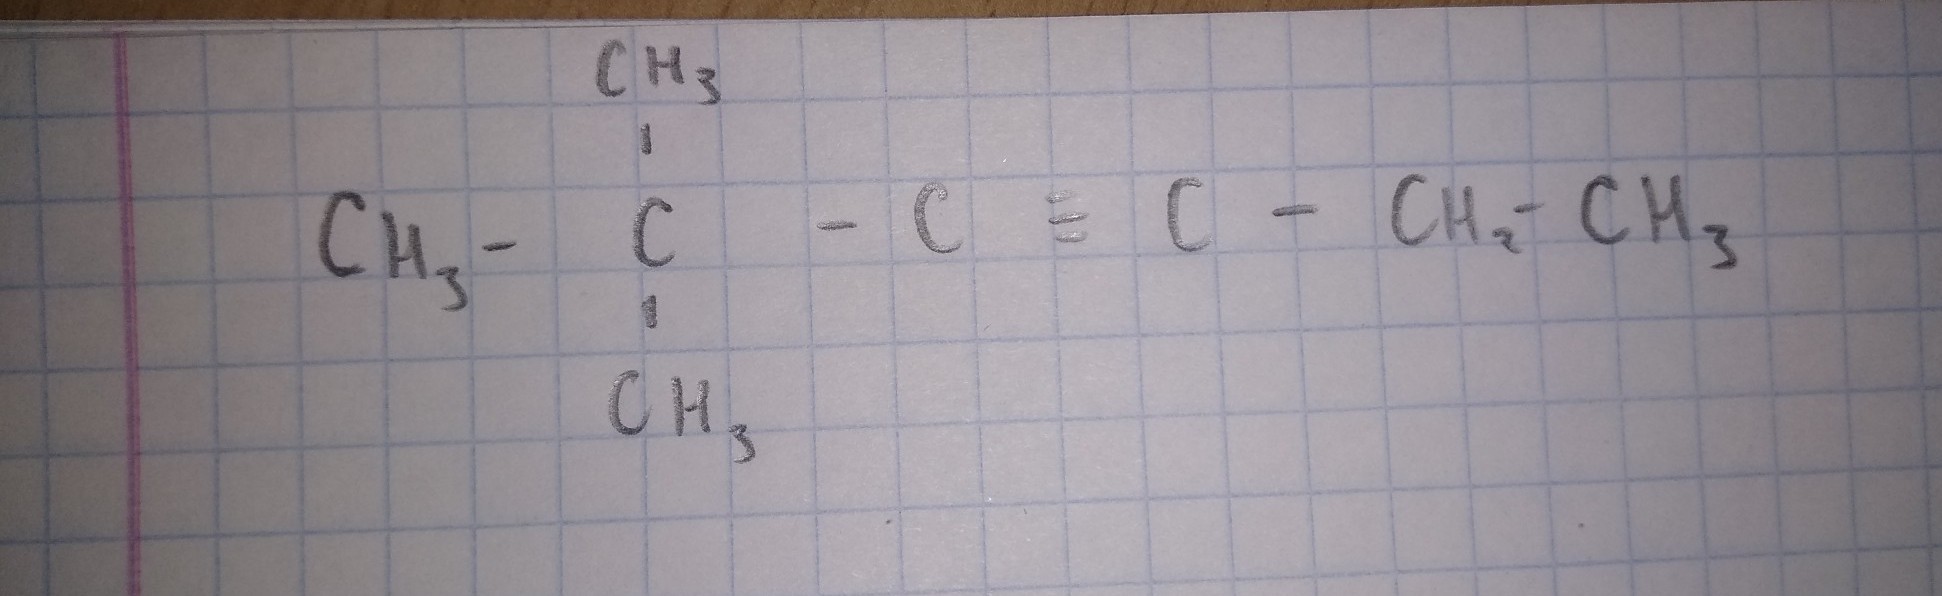 CH₃
CH₃ - C - C ≡ C - CH₂ - CH₃
CH₃